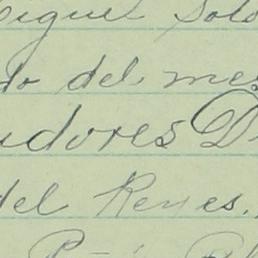 iguel Solo
do del mes
udores D
del Reyes.